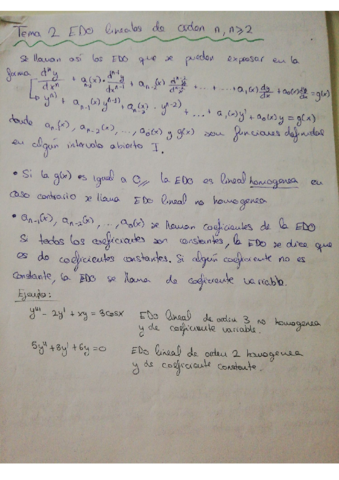 Tema 2 EDO lineales de orden n, n≥2
Se llaman así las EDO que se pueden expresar en la
forma [dⁿy/dxⁿ + aₙ₋₁(x)·dⁿ⁻¹y/dxⁿ⁻¹ + aₙ₋₂(x) dⁿ⁻²y/dxⁿ⁻² + ... + a₁(x) dy/dx + a₀(x) = g(x)
y⁽ⁿ⁾ + aₙ₋₁(x) y⁽ⁿ⁻¹⁾ + aₙ₋₂(x) · y⁽ⁿ⁻²⁾ + ... + a₁(x) y' + a₀(x) y = g(x)
donde aₙ₋₁(x), aₙ₋₂(x), ..., a₀(x) y g(x) son funciones definidas
en algún intervalo abierto I.
• Si la g(x) es igual a C, la EDO es lineal homogenea en
caso contrario se llama EDO lineal no homogenea
• aₙ₋₁(x), aₙ₋₂(x), ..., a₀(x) se llaman coeficientes de la EDO
Si todos los coeficientes son constantes, la EDO se dice que
es de coeficientes constantes. Si algún coeficiente no es
constante, la EDO se llama de coeficiente variable.
Ejemplo:
y''' - 2y' + xy = 8cosx EDO lineal de orden 3 no homogenea
y de coeficiente variable.
5y'' + 8y' + 6y = 0 EDO lineal de orden 2 homogenea
y de coeficiente constante.